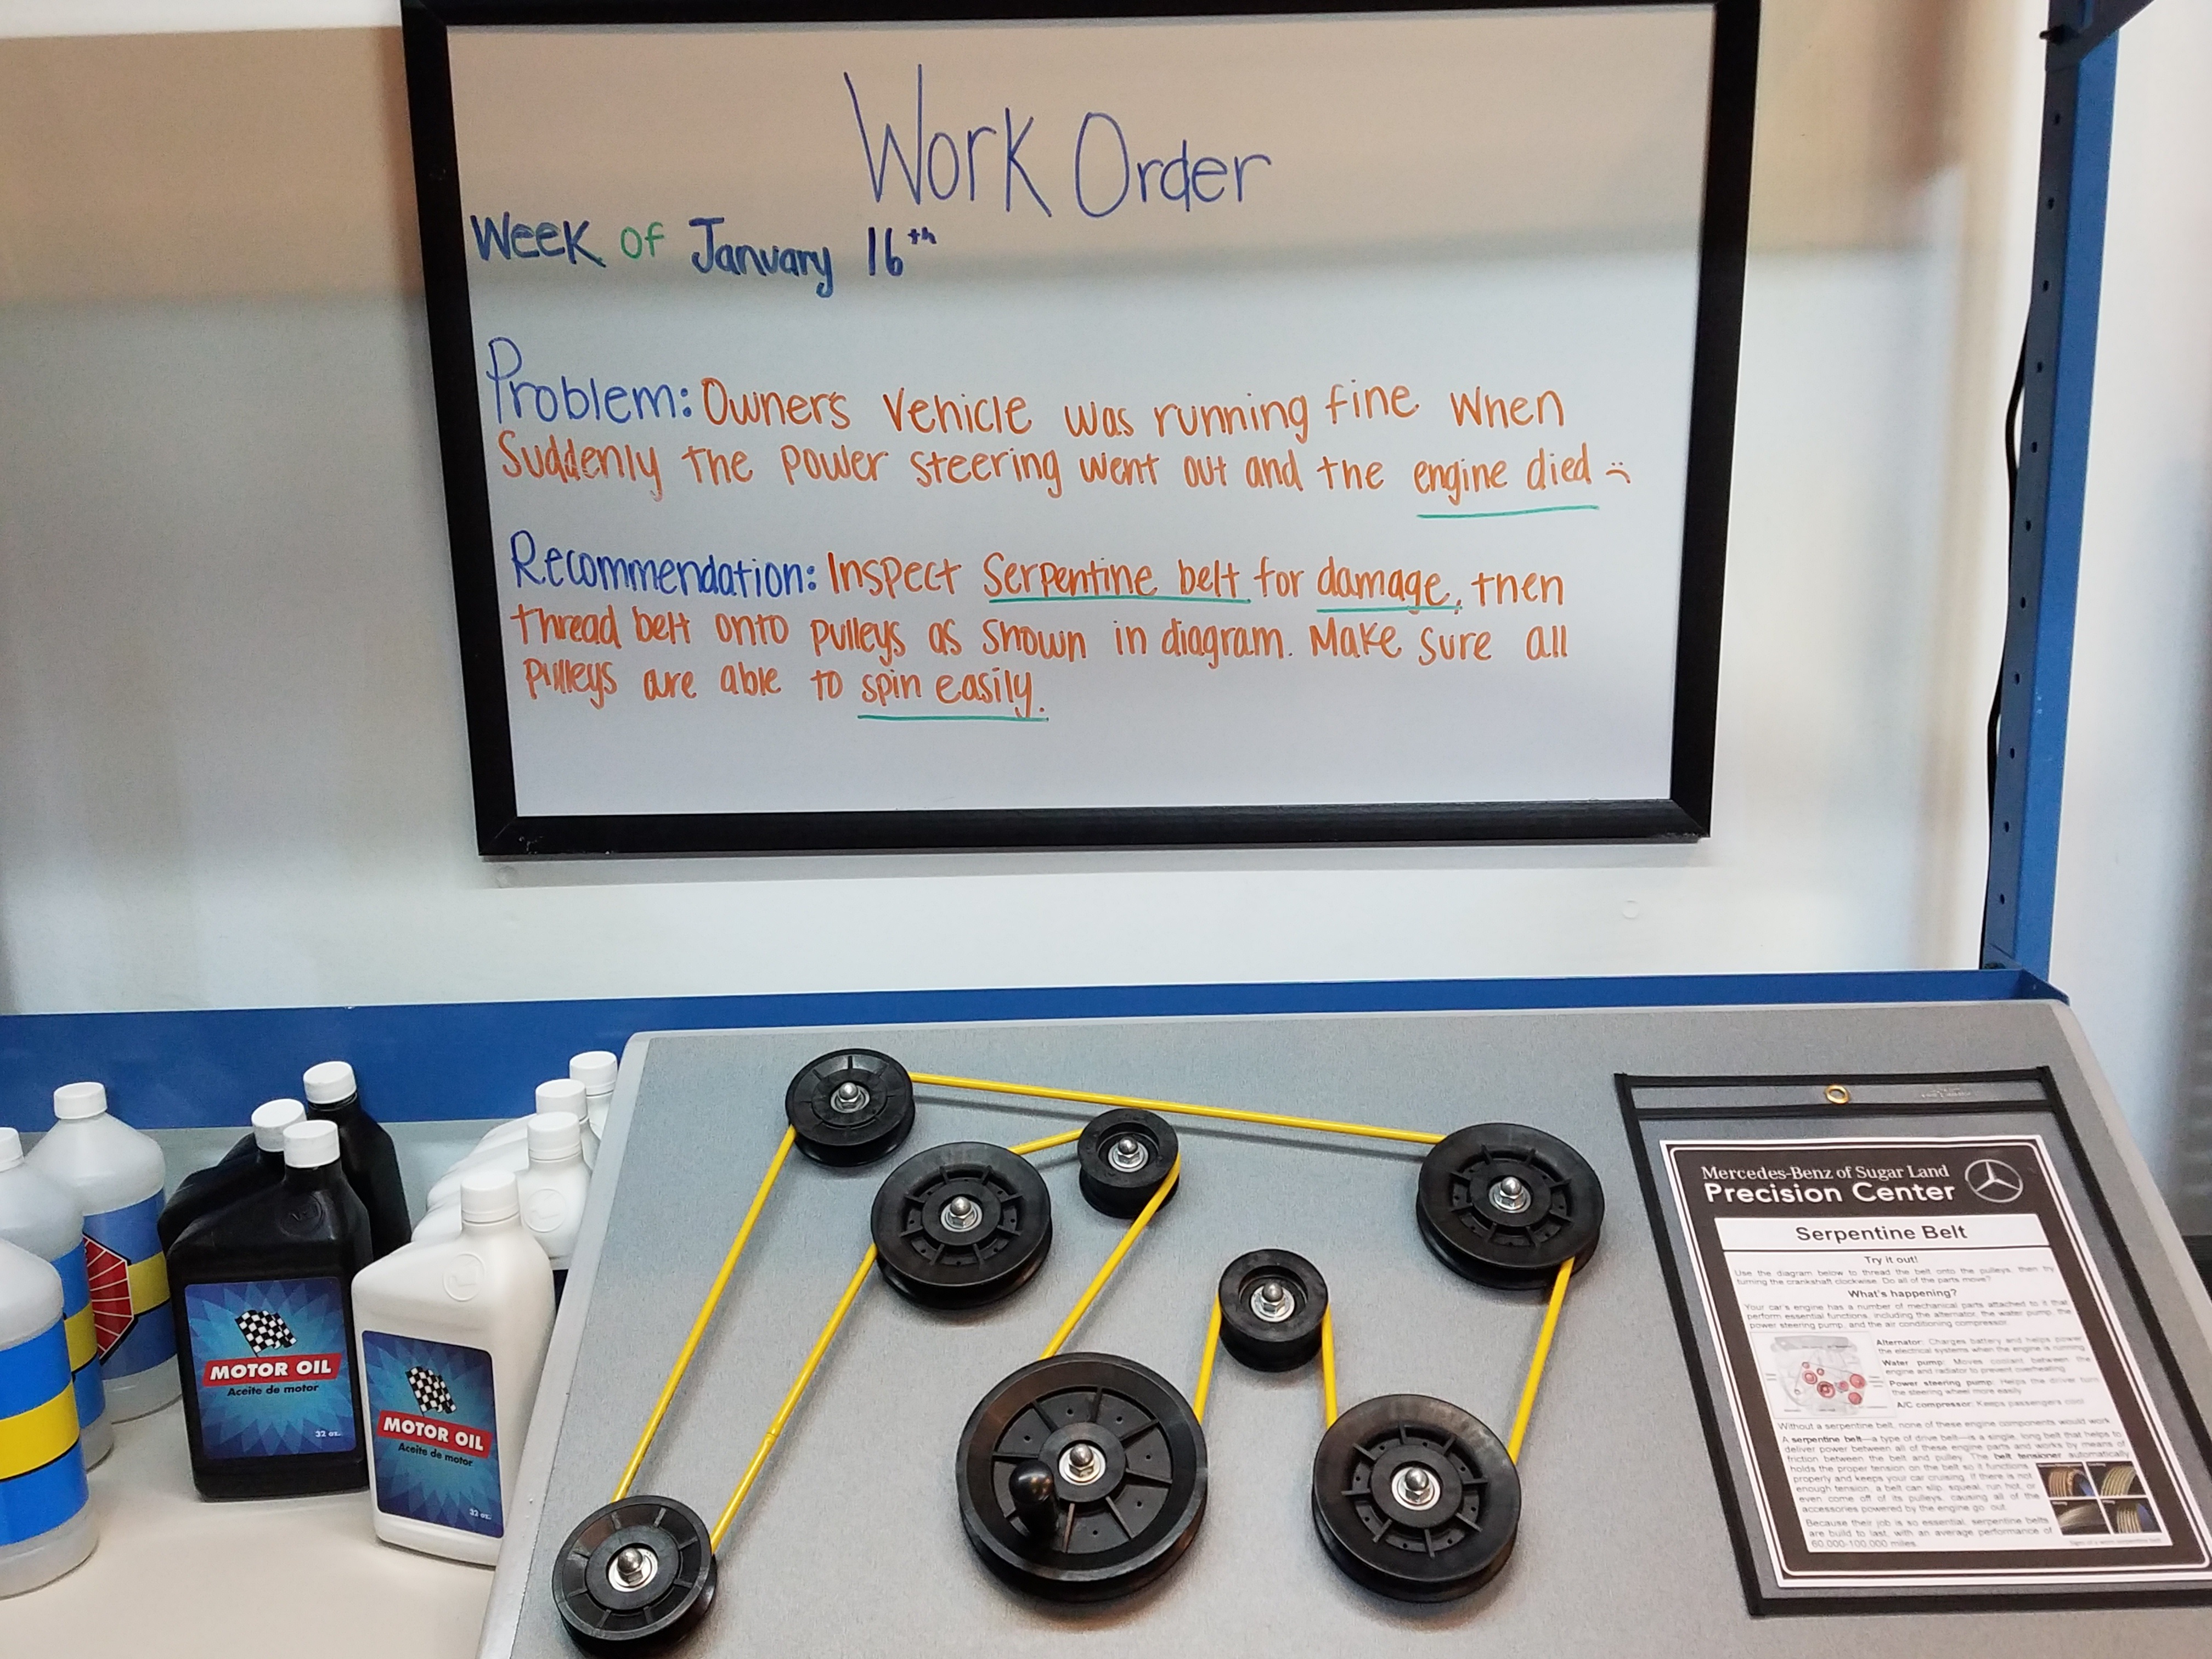 Work Order
Week of January 16th
Problem: Owner's vehicle was running fine when
suddenly the power steering went out and the engine died :(
Recommendation: Inspect Serpentine belt for damage, then
thread belt onto pulleys as shown in diagram. Make sure all
pulleys are able to spin easily.
MOTOR OIL
Aceite de motor
32 oz.
MOTOR OIL
Aceite de motor
32 oz.
Mercedes-Benz of Sugar Land
Precision Center
Serpentine Belt
Try it out!
Use the diagram below to thread the belt onto the pulleys, then try
turning the crankshaft clockwise. Do all of the parts move?
What's happening?
Your car's engine has a number of mechanical parts attached to it that
perform essential functions, including the alternator, the water pump, the
power steering pump, and the air conditioning compressor.
Alternator: Charges battery and helps power
the electrical systems when the engine is running
Water pump: Moves coolant between the
engine and radiator to prevent overheating
Power steering pump: Helps the driver turn
the steering wheel more easily
A/C compressor: Keeps passengers cool
Without a serpentine belt, none of these engine components would work.
A serpentine belt—a type of drive belt—is a single, long belt that helps to
deliver power between all of these engine parts and works by means of
friction between the belt and pulley. The belt tensioner automatically
holds the proper tension on the belt so it functions
properly and keeps your car cruising. If there is not
enough tension, a belt can slip, squeal, run hot, or
even come off of its pulleys, causing all of the
accessories powered by the engine go out.
Because their job is so essential, serpentine belts
are build to last, with an average performance of
60,000-100,000 miles.